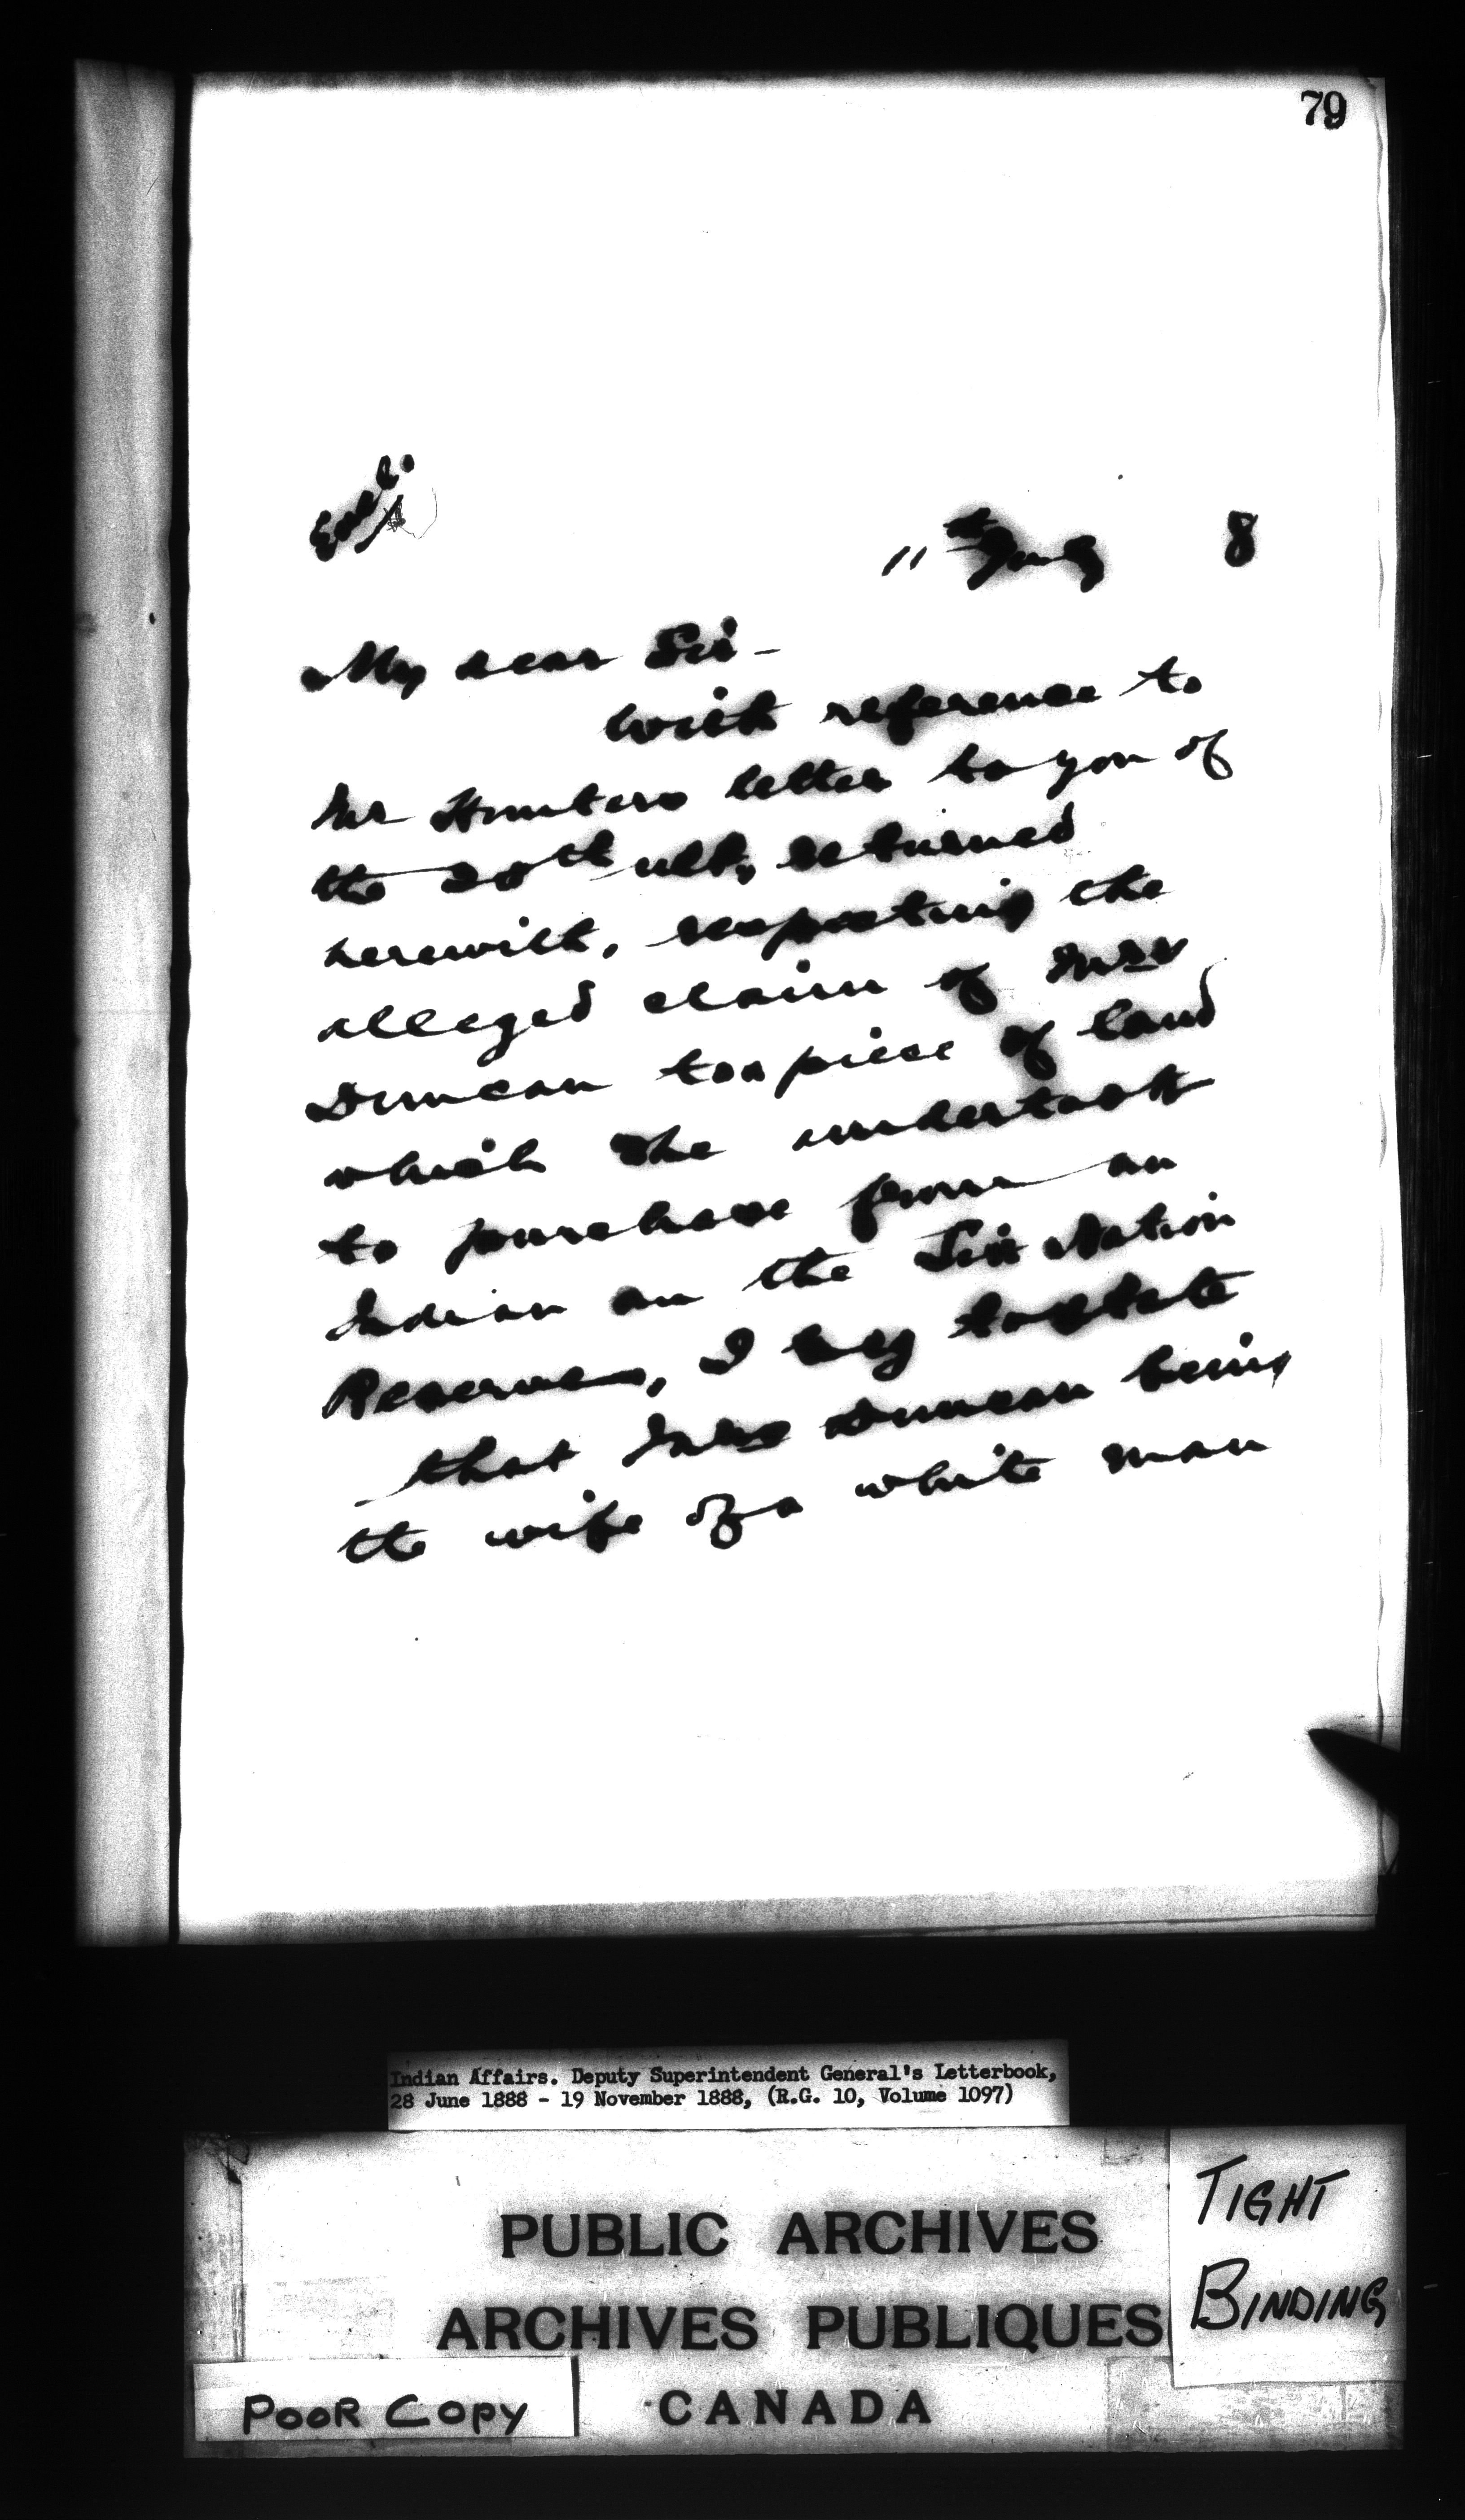 79
11th 8
My dear Sir -
With reference to
Mr Hunters letter to you of
the 20th ult, returned
herewith, respecting the
alleged claim of Mrs
Duncan to a piece of land
which she undertook
to purchase from an
Indian on the Six Nation
Reserves, I beg to state
that Mrs Duncan being
the wife of a white man
Indian Affairs. Deputy Superintendent General's Letterbook,
28 June 1888 - 19 November 1888, (R.G. 10, Volume 1097)
PUBLIC ARCHIVES
ARCHIVES PUBLIQUES
CANADA
TIGHT
BINDING
POOR COPY